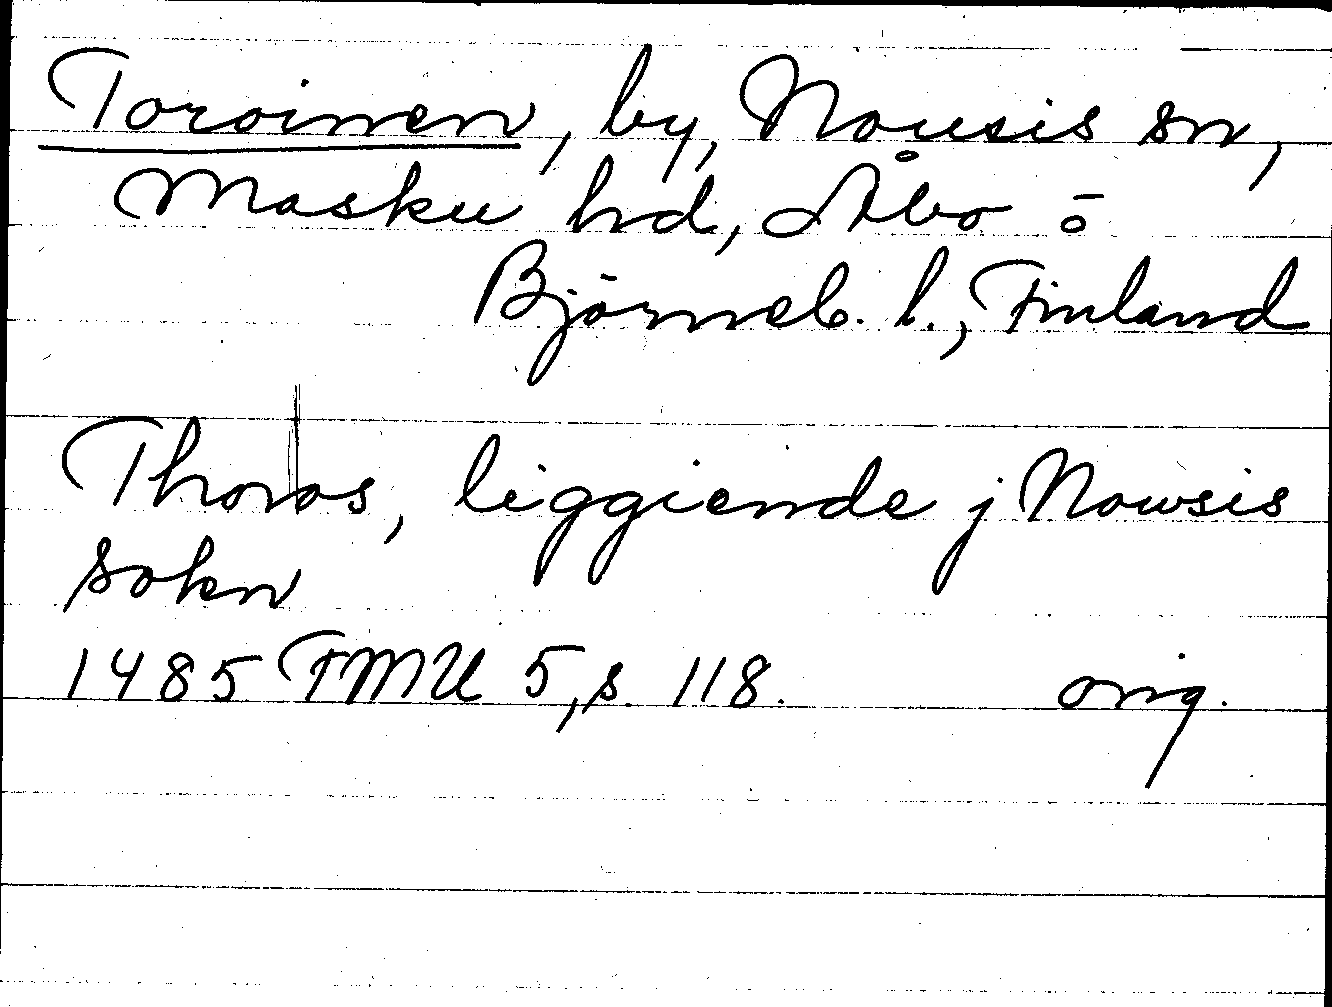 Toroinen, by, Nousis sn,
Masku hd, Åbo o
Björneb. l., Finland
Thoros, liggiende j Nowsis
sokn
1485 FMU 5, s. 118. orig.